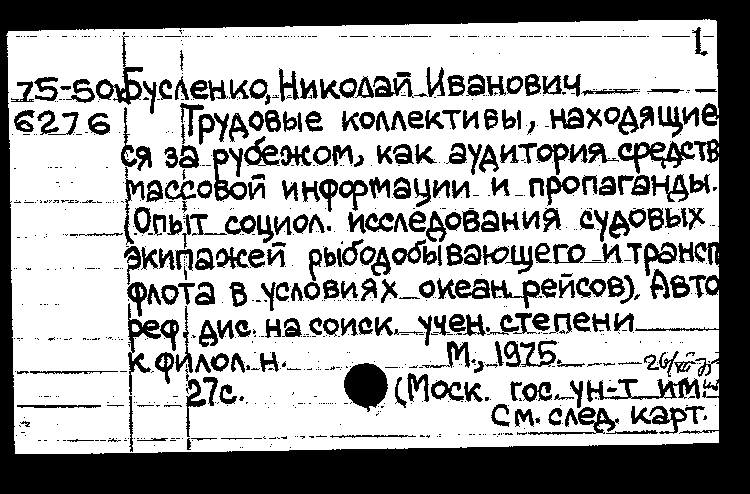 1.
75-50 Бусленко, Николай Иванович
6276 Трудовые коллективы, находящие
ся за рубежом, как аудитория средств
массовой информации и пропаганды.
(Опыт социол. исследования судовых
экипажей рыбодобывающего и трансп
флота в условиях океан. рейсов). Авто
реф. дис. на соиск. учен. степени
к. филол. н. М., 1975.
27с. (Моск. гос. ун-т им.
См. след. карт.